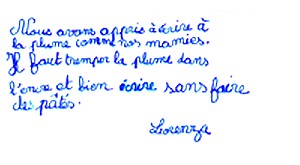 Nous avons appris à écrire à
la plume comme nos mamies.
Il faut tremper la plume dans
l'encre et bien écrire sans faire
des pâtés.
Lorenza